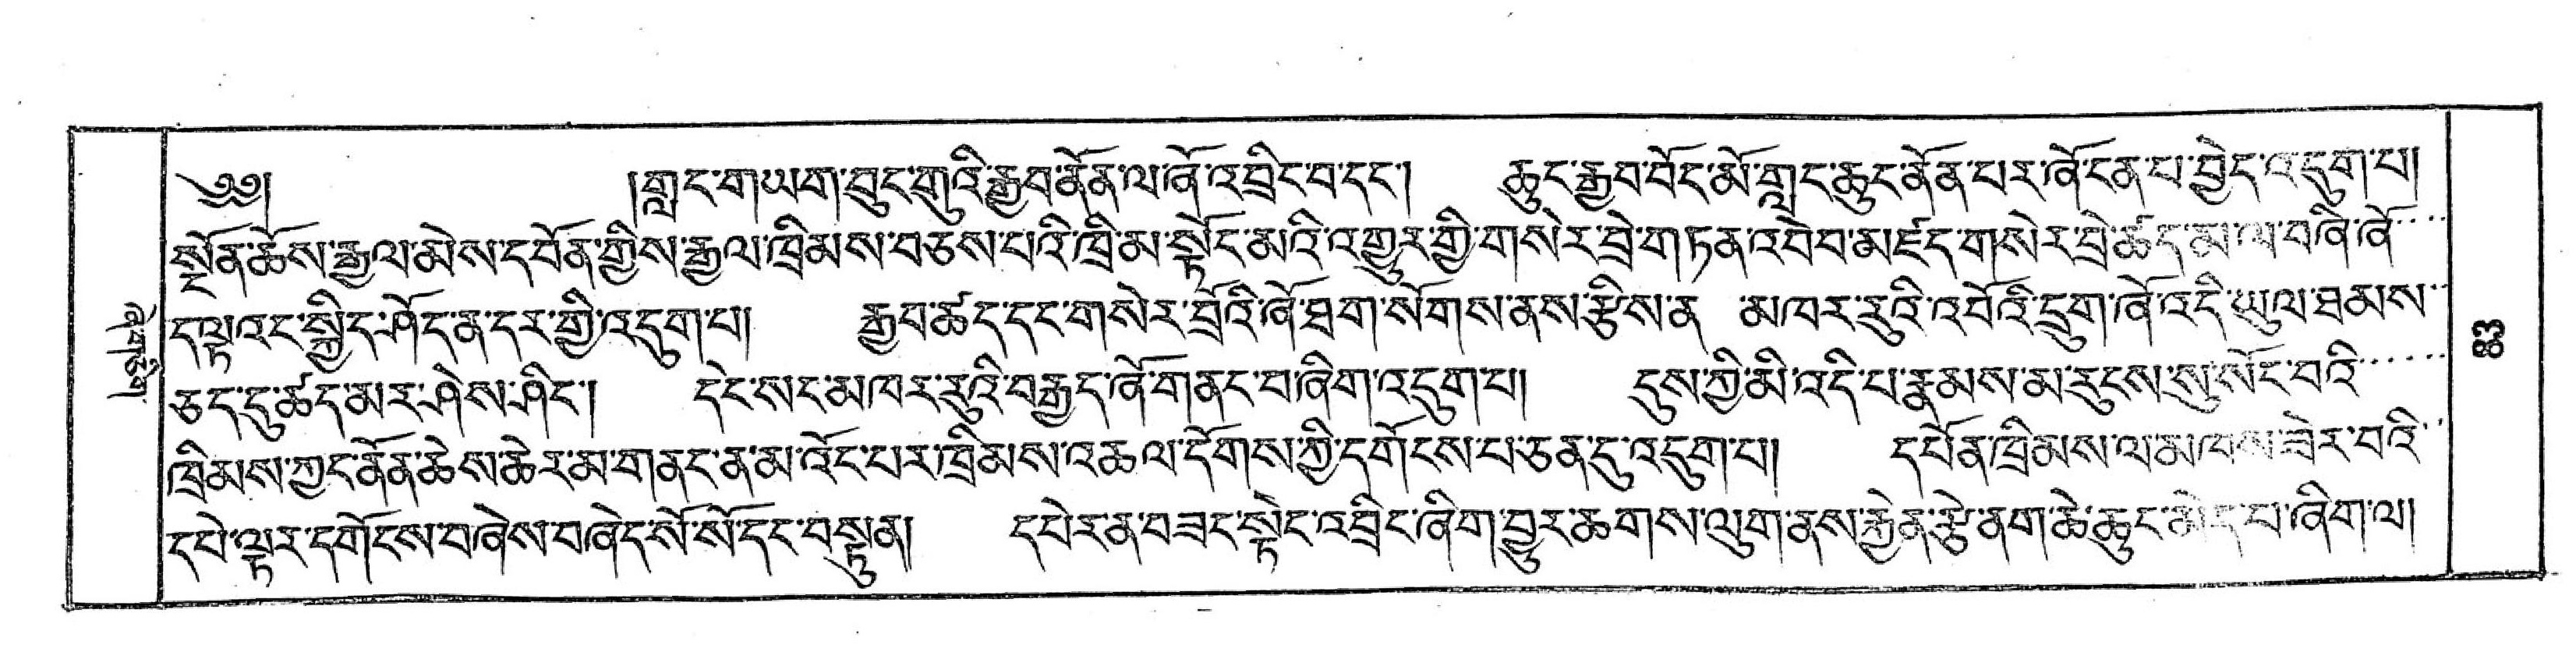 ༄༅། །གླང་ག་ཡག་བྲུང་གུའི་རྒྱབ་ནོན་ལ་ཞོ་འབྲིང་བ་དང་། ཆུང་རྒྱབ་བོང་མོ་གླང་ཆུང་ནོན་པར་ཞོ་ངན་པ་བྱེད་འདུག་པ།
སྔོན་ཆོས་རྒྱལ་མེས་དབོན་གྱིས་རྒྱལ་ཁྲིམས་བཅས་པའི་ཁྲིམ་སྟོང་མའི་འགྱུར་གྱི་གསེར་བྲེ་གཏན་འབེབ་མཛད་གསེར་བྲེ་ཚད་མ་ལ་བཞི་ཞོ
ད་ལྟ་འང་སྐྱིད་ཤོད་ན་དར་གྱི་འདུག་པ། རྒྱབ་ཚད་དང་གསེར་བྲོའི་ཞོ་ཐག་སོགས་ནས་རྩིས་ན མཁར་རུའི་འབོའི་དྲུག་ཞོ་འདི་ཡུལ་ཐམས
ཅད་དུ་ཚད་མར་ཤེས་ཤིང་། དེང་སང་མཁར་རུའི་བརྒྱད་ཞོ་གནང་བ་ཞིག་འདུག་པ། དུས་ཀྱི་མི་འདི་པ་རྣམས་མ་རུངས་སུ་སོང་བའི
ཁྲིམས་ཀྱང་ནོན་ཆེས་ཆེར་མ་གནང་ན་མ་འོང་པར་ཁྲིམས་འཆལ་དོགས་ཀྱི་དགོངས་པ་ཅན་དུ་འདུག་པ། དཔོན་ཁྲིམས་ལ་མཁས་ཟེར་བའི
དཔེ་ལྟར་དགོངས་བཞེས་བཞེད་སོ་སོ་དང་བསྟུན། དཔེར་ན་བཟང་སྟེང་འབྲིང་ཞིག་བྱུར་ཆགས་ལུག་ནས་རྐྱེན་རྩེ་ནག་ཆེ་ཆུང་མེད་པ་ཞིག་ལ།
༦༣